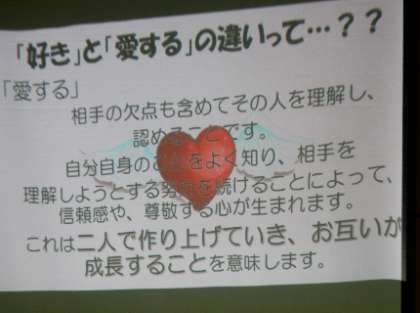 「好き」と「愛する」の違いって…？？
「愛する」
相手の欠点も含めてその人を理解し、
認めることです。
自分自身のことをよく知り、相手を
理解しようとする努力を続けることによって、
信頼感や、尊敬する心が生まれます。
これは二人で作り上げていき、お互いが
成長することを意味します。